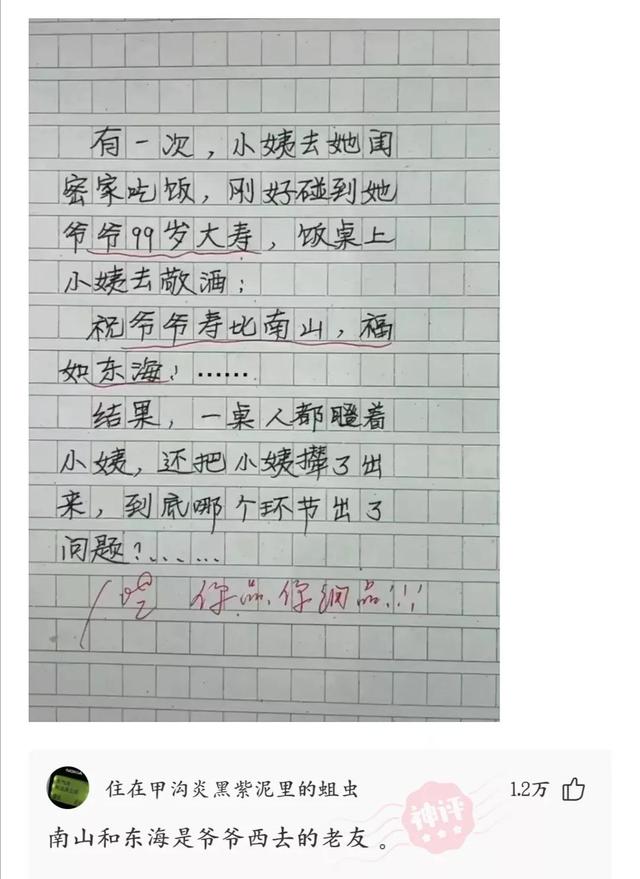 有一次，小姨去她闺
密家吃饭，刚好碰到她
爷爷99岁大寿，饭桌上
小姨去敬酒；
祝爷爷寿比南山，福
如东海！……
结果，一桌人都瞪着
小姨，还把小姨撵了出
来，到底哪个环节出了
问题？……
你品，你细品！！！
住在甲沟炎黑紫泥里的蛆虫
1.2万
南山和东海是爷爷西去的老友。
神评